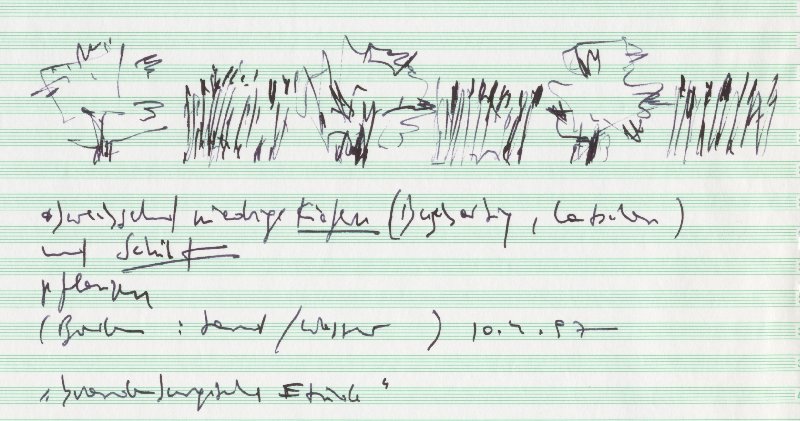 abwechselnd niedrige Kiefern (
und Schilf
pflanzen
( : Land / Wasser ) 10.4.97
„brandenburgische Etüde“